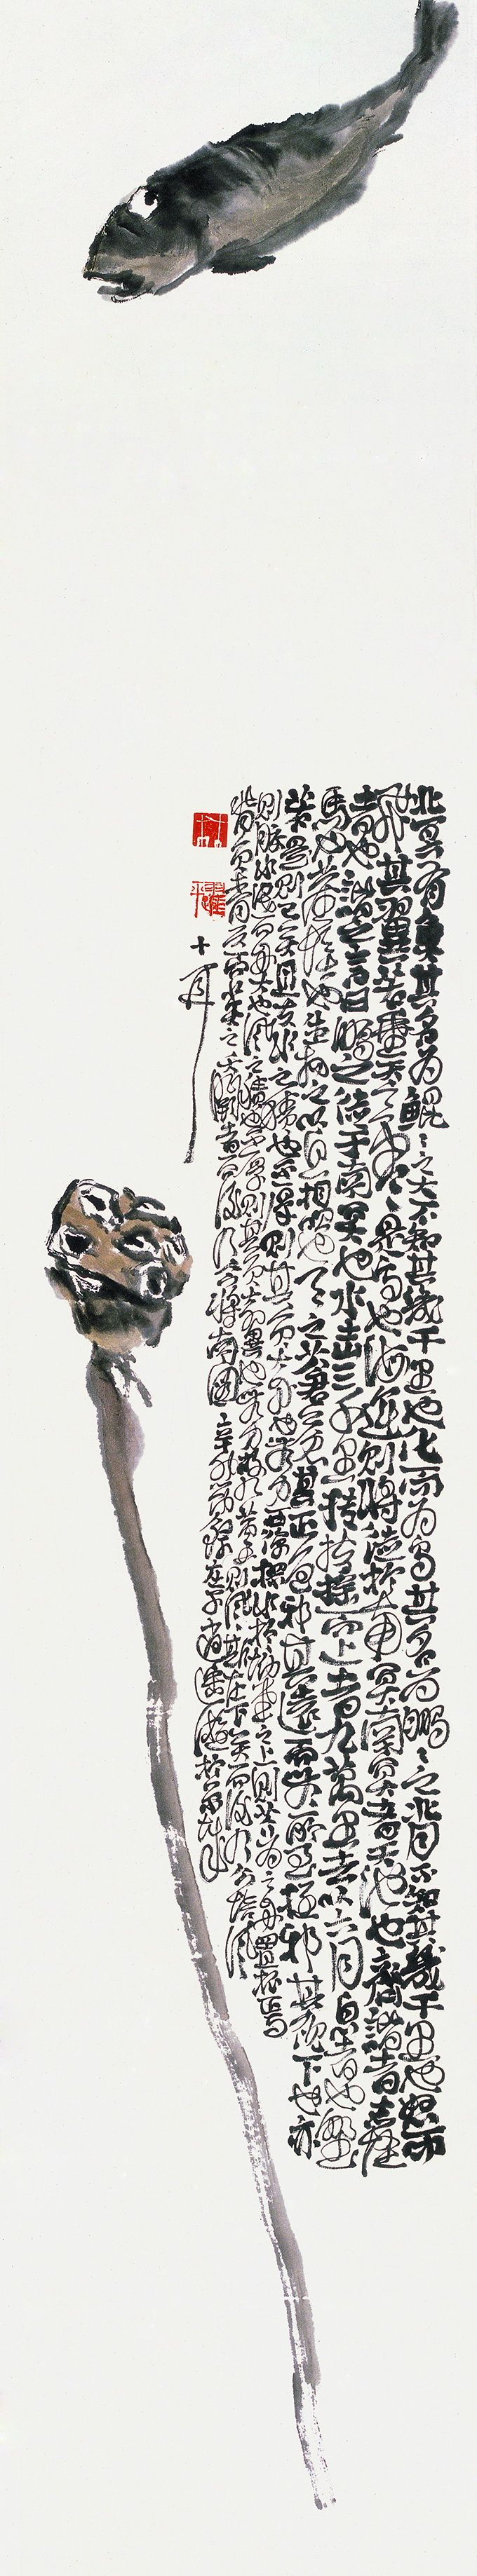 北冥有魚其名為鯤〻之大不知其幾千里也化而為鳥其名為鵬〻之背不知其幾千里也怒而
飛其翼若垂天之雲是鳥也海運則將徙於南冥南冥者天池也齊諧者志怪
者也諧之言曰鵬之徙于南冥也水击三千里摶扶搖而上者九萬里去以六月息者也野
馬也塵埃也生物之以息相吹也天之蒼蒼其正色邪其遠而無所至極邪其視下也亦
若是則已矣且夫水之積也不厚則其負大舟也無力覆杯水於坳堂之上則芥為之舟置杯焉
則膠水淺而舟大也風之積也不厚則其負大翼也無力故九萬里則風斯在下矣而後乃今培風
背負青天而莫之夭閼者而後乃今將南圖 辛未節錄莊子逍遙遊於